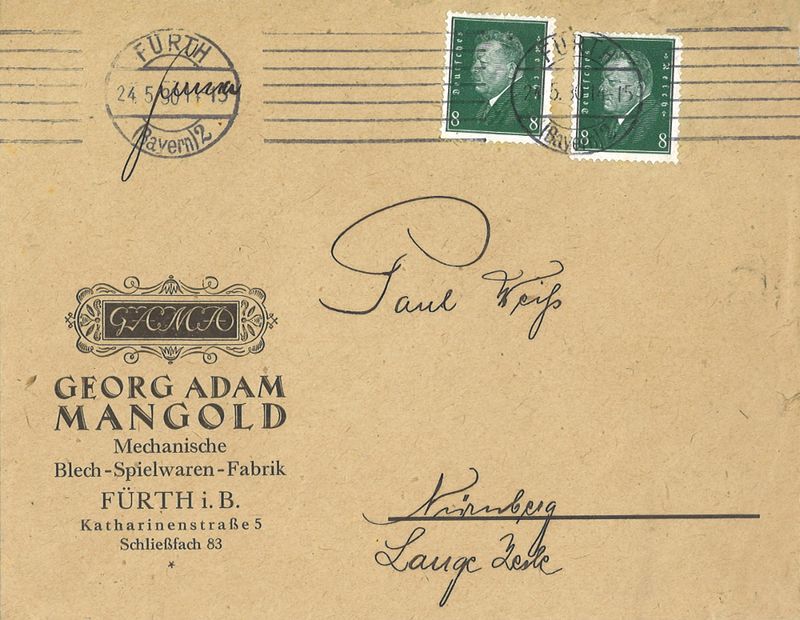 FÜRTH
24.5.30 11-15
(Bayern) 2
Deutsches Reich
8 8
FÜRTH
24.5.30 15
(Bayern) 2
Deutsches Reich
8 8
Paul Weiß
GAMA
GEORG ADAM
MANGOLD
Mechanische
Blech-Spielwaren-Fabrik
FÜRTH i. B.
Katharinenstraße 5
Schließfach 83
*
Nürnberg
Lange Zeile